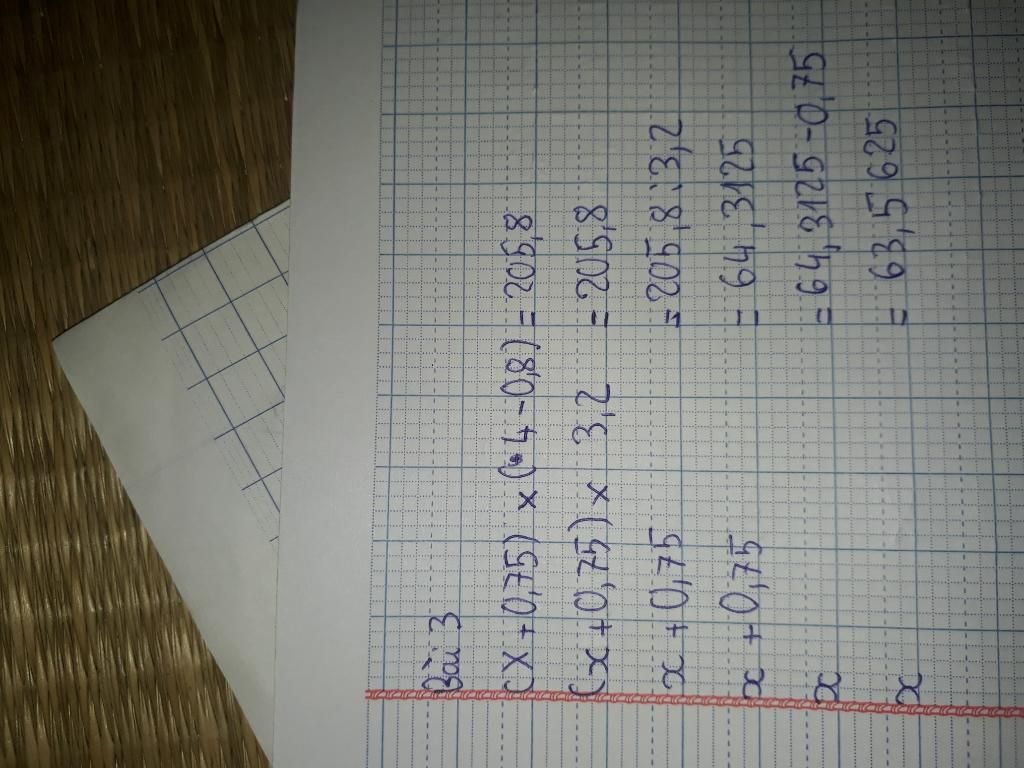 Bài 3
(X + 0,75) x (4 - 0,8) = 205,8
(x + 0,75) x 3,2 = 205,8
x + 0,75 = 205,8 : 3,2
x + 0,75 = 64,3125
x = 64,3125 - 0,75
x = 63,5625